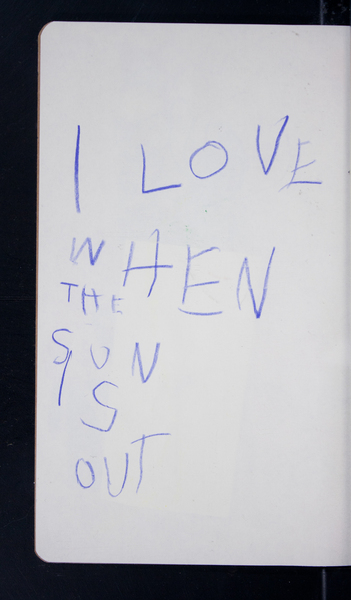 I LOVE
WHEN
THE
SUN
IS
OUT